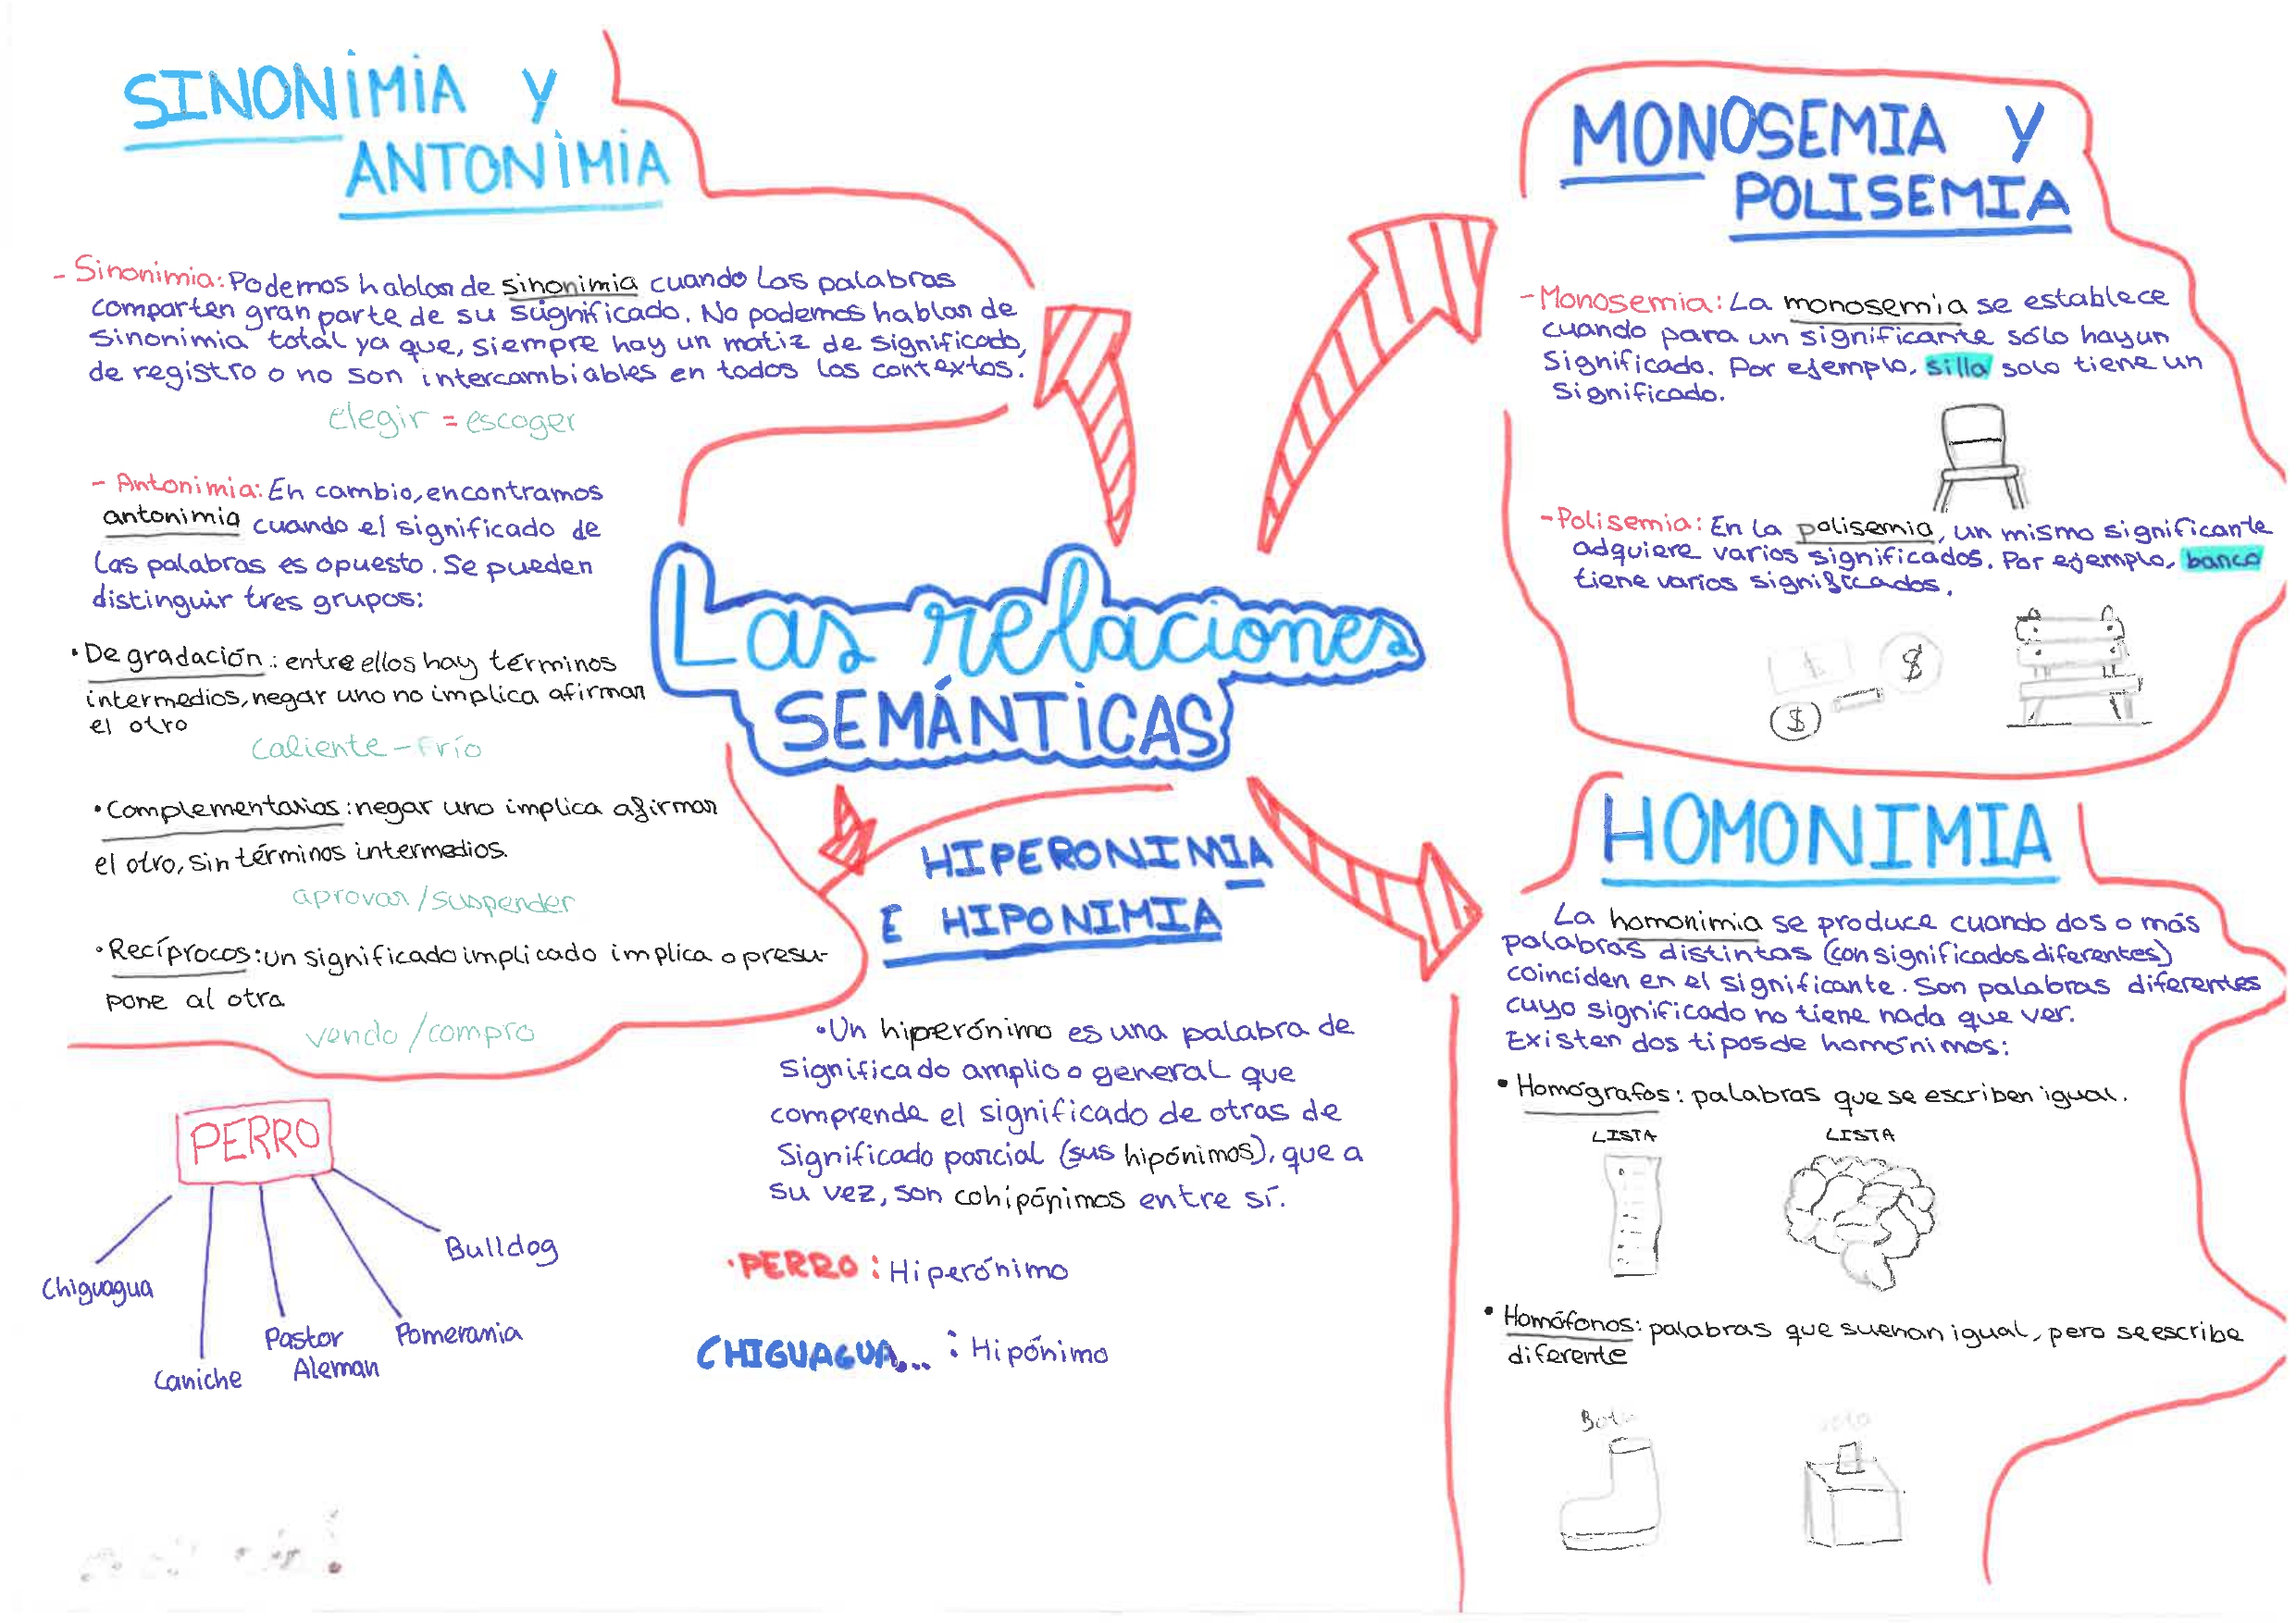 SINONIMIA Y
ANTONIMIA
- Sinonimia: Podemos hablar de sinonimia cuando las palabras
comparten gran parte de su significado. No podemos hablar de
sinonimia total ya que, siempre hay un matiz de significado,
de registro o no son intercambiables en todos los contextos.
elegir = escoger
- Antonimia: En cambio, encontramos
antonimia cuando el significado de
las palabras es opuesto. Se pueden
distinguir tres grupos:
• De gradación: entre ellos hay términos
intermedios, negar uno no implica afirmar
el otro
Caliente - Frío
• Complementarios: negar uno implica afirmar
el otro, sin términos intermedios.
aprovar / suspender
• Recíprocos: un significado implicado implica o presu-
pone al otra
vendo / compro
Las relaciones
SEMÁNTICAS
MONOSEMIA Y
POLISEMIA
- Monosemia: La monosemia se establece
cuando para un significante sólo hay un
significado. Por ejemplo, silla solo tiene un
significado.
- Polisemia: En la polisemia, un mismo significante
adquiere varios significados. Por ejemplo, banco
tiene varios significados.
$
$
$
HIPERONIMIA
E HIPONIMIA
• Un hiperónimo es una palabra de
significado amplio o general que
comprende el significado de otras de
significado parcial (sus hipónimos), que a
su vez, son cohipónimos entre sí.
• PERRO: Hiperónimo
CHIGUAGUA...: Hipónimo
PERRO
Chiguagua
Caniche
Pastor
Aleman
Pomerania
Bulldog
HOMONIMIA
La homonimia se produce cuando dos o más
palabras distintas (con significados diferentes)
coinciden en el significante. Son palabras diferentes
cuyo significado no tiene nada que ver.
Existen dos tipos de homónimos:
• Homógrafos: palabras que se escriben igual.
LISTA LISTA
• Homófonos: palabras que suenan igual, pero se escribe
diferente